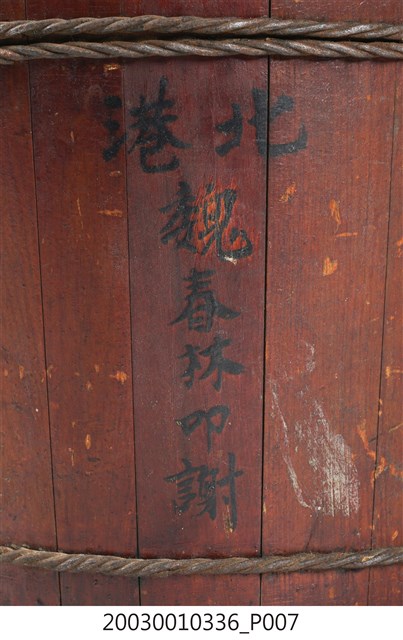 北港
魏春林叩謝
20030010336_P007